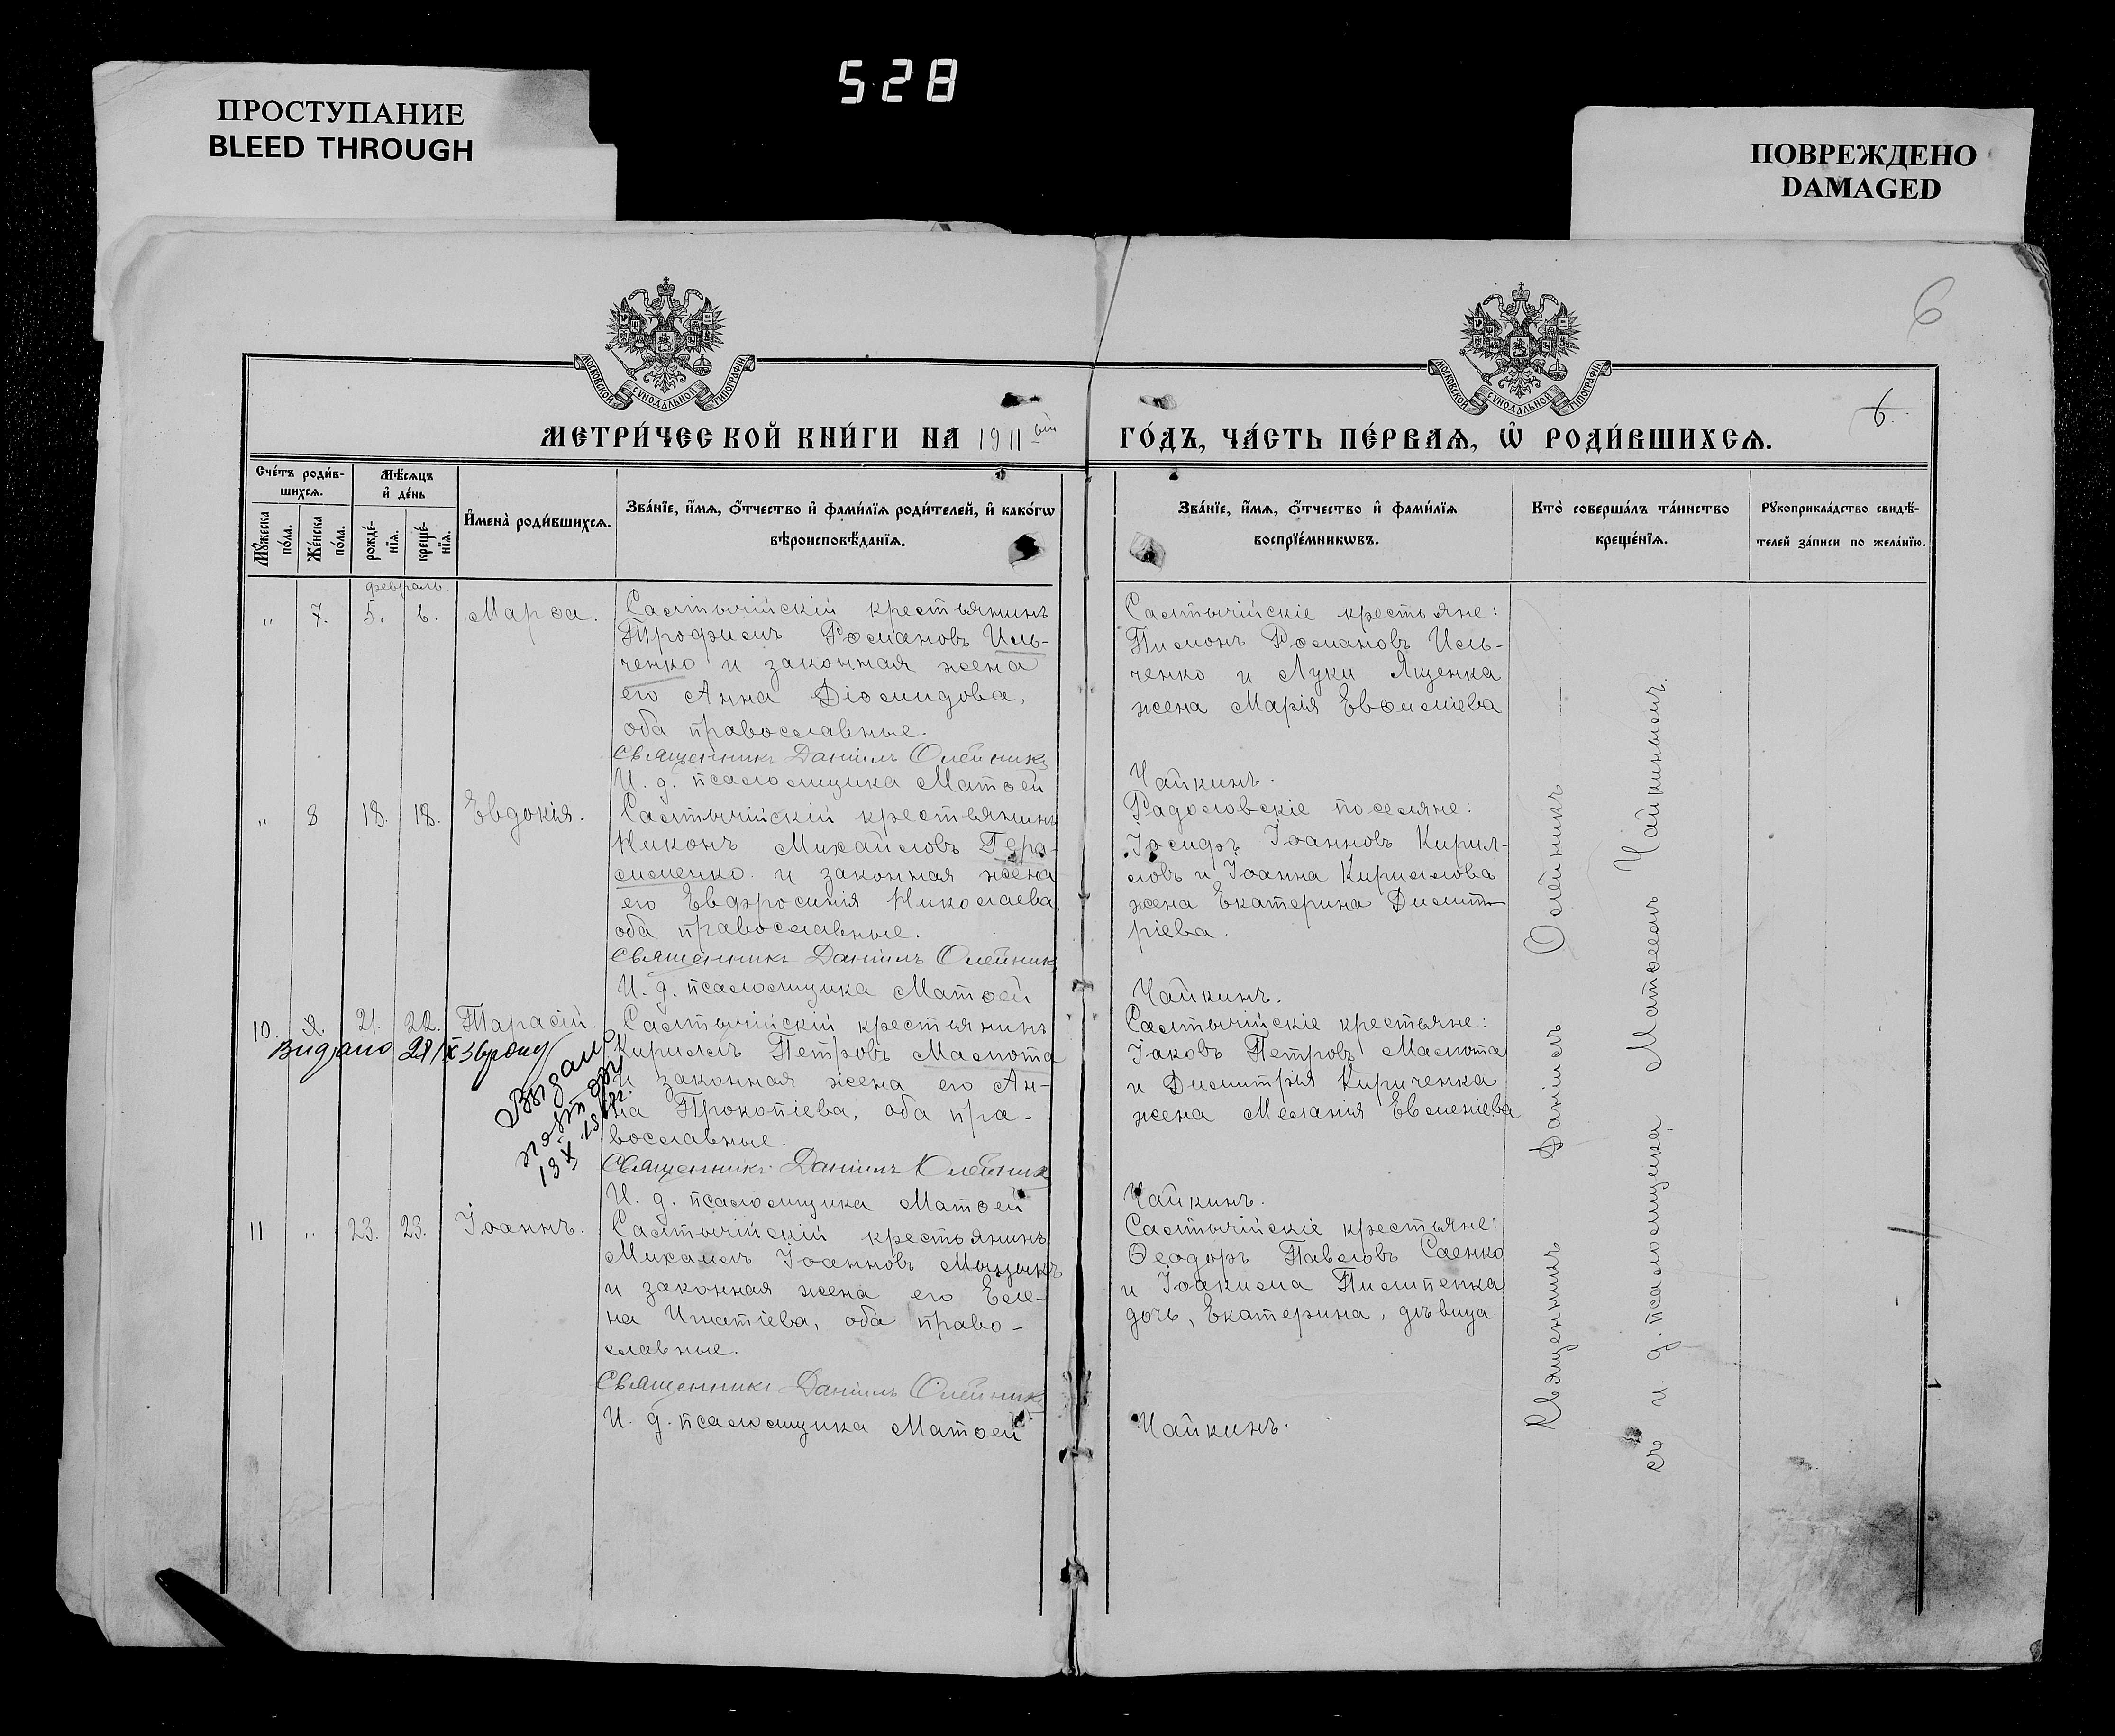 528
ПРОСТУПАНИЕ
BLEED THROUGH
ПОВРЕЖДЕНО
DAMAGED
6
МОСКОВСКОЙ СѴНОДАЛЬНОЙ ТИПОГРАФІИ
МОСКОВСКОЙ СѴНОДАЛЬНОЙ ТИПОГРАФІИ
6.
МЕТРИ́ЧЕСКОЙ КНИ́ГИ НА 1911 ый ГО́ДЪ, ЧА́СТЬ ПЕ́РВАѦ, Ѡ҆ РОДИ́ВШИХСѦ.
Сче́тъ роди́в-
шихсѧ.
Мѣ́сѧцъ
и҆ де́нь
Мꙋ́жеска
по́ла.
Же́нска
по́ла.
рожде́-
нїѧ.
креще́-
нїѧ.
И҆мена̀ роди́вшихсѧ.
Зва́нїе, и҆́мѧ, ѻ҆́тчество и҆ фами́лїѧ роди́телей, и҆ како́гѡ
вѣроисповѣ́данїѧ.
Зва́нїе, и҆́мѧ, ѻ҆́тчество и҆ фами́лїѧ
воспрїе́мникѡвъ.
Кто̀ соверша́лъ та́инство
креще́нїѧ.
Рꙋкоприкла́дство свидѣ́-
телей за́писи по жела́нїю.
Февраль.
„ 7. 5. 6. Марѳа.
Салтычійскій крестьянинъ
Трофимъ Романовъ Иль-
ченко и законная жена
его Анна Діомидова,
оба православные.
Священникъ Даніилъ Олейникъ
И. д. псаломщика Матѳей
Салтычійскіе крестьяне:
Пимонъ Романовъ Иль-
ченко и Луки Ященка
жена Марія Евѳиміева
Чайкинъ.
„ 8 18. 18. Евдокія.
Салтычійскій крестьянинъ
Никонъ Михайловъ Гера-
сименко и законная жена
его Евфросинія Николаева,
оба православные.
Священникъ Даніилъ Олейникъ
И. д. псаломщика Матѳей
Радоловскіе поселяне:
Іосифъ Іоанновъ Кирил-
ловъ и Іоанна Кириллова
жена Екатерина Димит-
ріева.
Чайкинъ.
10. 21. 22. Тарасій.
Видано 28/X
Выдано
13 X
Салтычійскій крестьянинъ
Кириллъ Петровъ Маслота
и законная жена его Ан-
на Прокопіева, оба пра-
вославные.
Священникъ Даніилъ Олейникъ
И. д. псаломщика Матѳей
Салтычійскіе крестьяне:
Іаковъ Петровъ Маслота
и Димитрія Кириченка
жена Меланія Евменіева
Чайкинъ.
11 „ 23. 23. Іоаннъ.
Салтычійскій крестьянинъ
Михаилъ Іоанновъ Мыцыкъ
и законная жена его Еле-
на Игнатіева, оба право-
славные.
Священникъ Даніилъ Олейникъ
И. д. псаломщика Матѳей
Салтычійскіе крестьяне:
Ѳеодоръ Павловъ Саенко
и Іоакима Пилипенка
дочь, Екатерина, дѣвица.
Чайкинъ.
Священникъ Даніилъ Олейникъ
съ и. д. псаломщика Матѳеемъ Чайкинымъ.